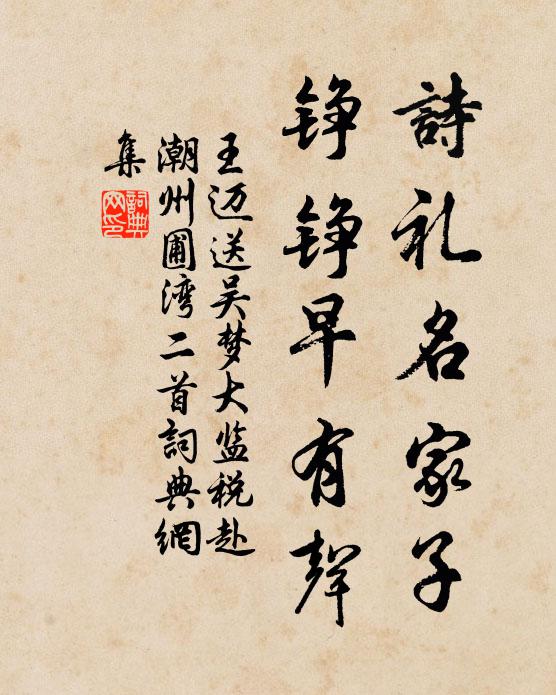 詩礼名家子
铮铮早有聲
王迈送吴梦大监税赴
潮州圃湾二首詞典網
集
詞典
网印